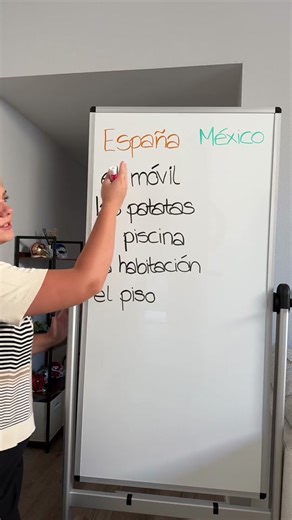 España México
el móvil
las patatas
piscina
habitación
el piso